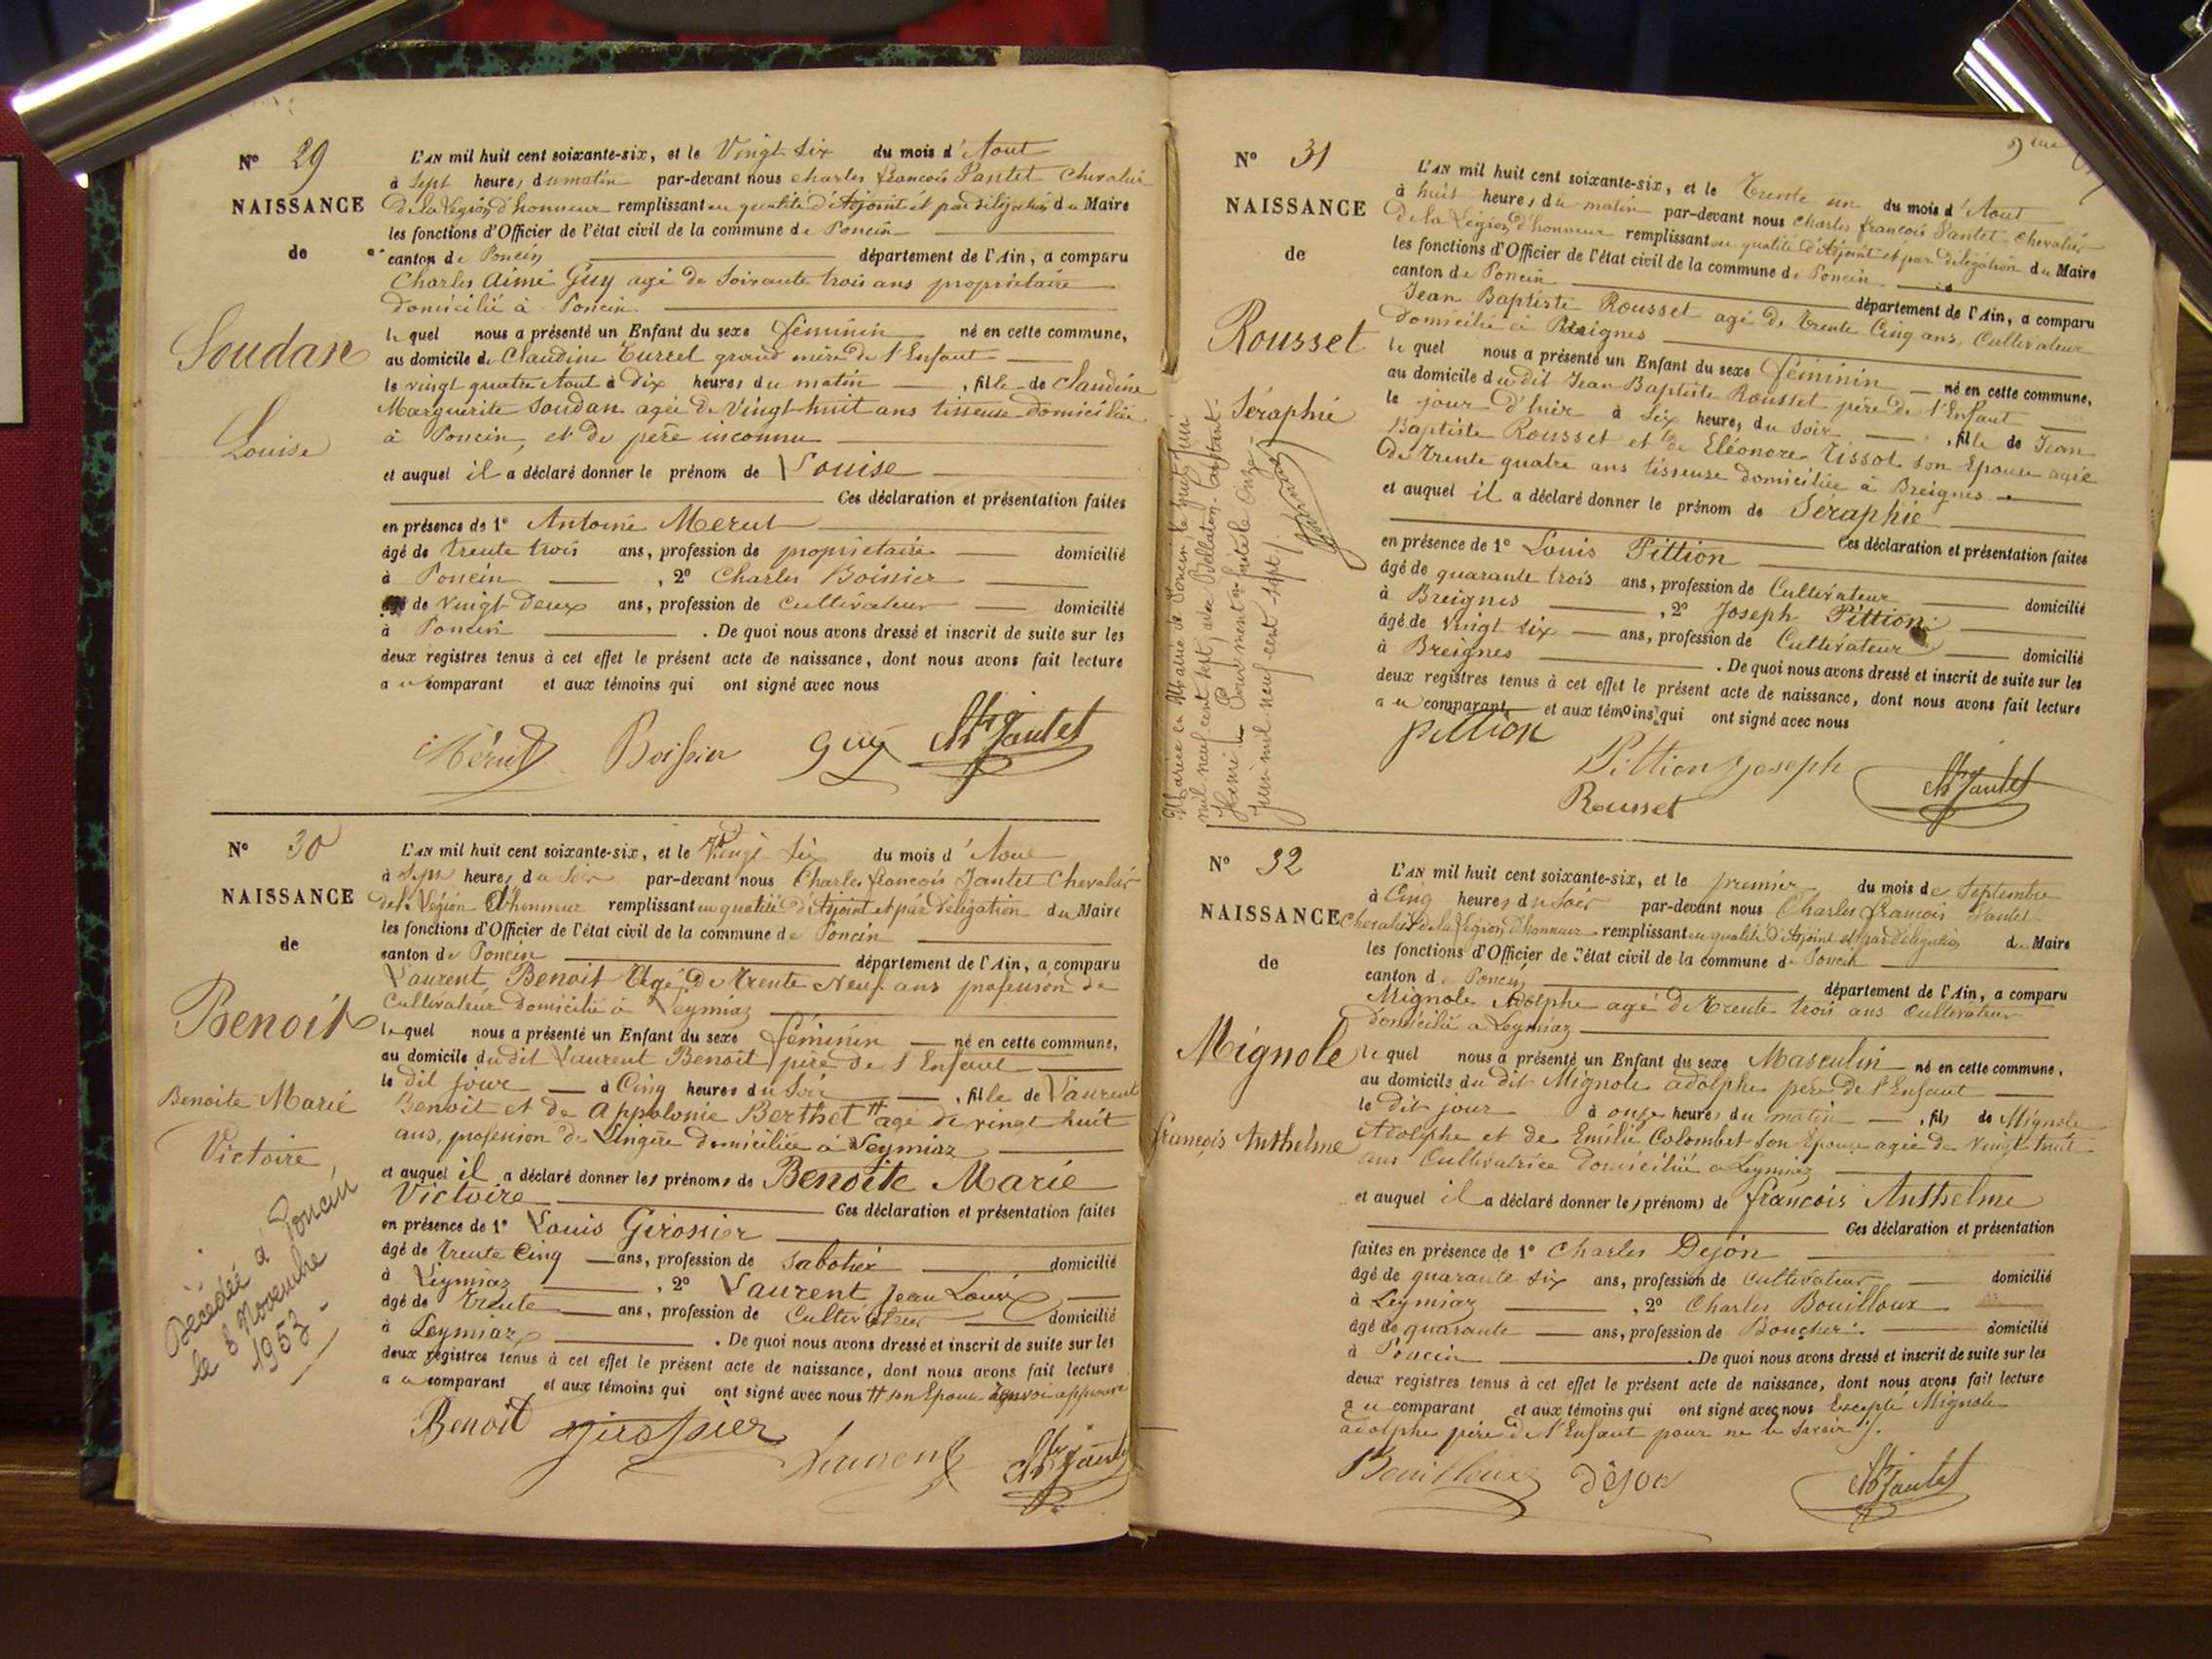 N° 29
NAISSANCE
de
Soudan
Louise
L'AN mil huit cent soixante-six, et le Vingt Six du mois d'Aout
à Sept heures du matin par-devant nous Charles François Jantet Chevalier
De la Légion d'honneur remplissant en qualité d'Adjoint et par délégation du Maire
les fonctions d'Officier de l'état civil de la commune de Poncin
canton de Poncin département de l'Ain, a comparu
Charles Aimé Guy agé de Soixante trois ans propriétaire
domicilié à Poncin
lequel nous a présenté un Enfant du sexe féminin né en cette commune,
au domicile de Claudine Turrel grand mère de l'Enfant
le vingt quatre Aout à Dix heures du matin, fille de Claudine
Marguerite Soudan agée de Vingt-huit ans tisseuse domiciliée
à Poncin, et de père inconnu
et auquel il a déclaré donner le prénom de Louise
Ces déclaration et présentation faites
en présence de 1° Antoine Merut
âgé de trente trois ans, profession de propriétaire domicilié
à Poncin, 2° Charles Boissier
âgé de vingt Deux ans, profession de Cultivateur domicilié
à Poncin. De quoi nous avons dressé et inscrit de suite sur les
deux registres tenus à cet effet le présent acte de naissance, dont nous avons fait lecture
au comparant et aux témoins qui ont signé avec nous
Mérut Boissier Guy Ch Jantet
N° 30
NAISSANCE
de
Benoit
Benoite Marie
Victoire
Décédée à Poncin
le 8 Novembre
1953
L'AN mil huit cent soixante-six, et le Vingt Six du mois d'Aout
à Sept heures du Soir par-devant nous Charles François Jantet Chevalier
de la Légion d'honneur remplissant en qualité d'Adjoint et par délégation du Maire
les fonctions d'Officier de l'état civil de la commune de Poncin
canton de Poncin département de l'Ain, a comparu
Laurent Benoit Agé De trente Neuf ans profession de
Cultivateur domicilié à Leymiaz
lequel nous a présenté un Enfant du sexe féminin né en cette commune,
au domicile dudit Laurent Benoit père de l'Enfant
le dit jour à Cinq heures du Soir, fille de Laurent
Benoit et de Appolonie Berthet # agé de vingt huit
ans, profession de Lingère domiciliée à Leymiaz
et auquel il a déclaré donner les prénoms de Benoite Marie
Victoire Ces déclaration et présentation faites
en présence de 1° Louis Girossier
âgé de trente Cinq ans, profession de Sabotier domicilié
à Leymiaz, 2° Laurent Jean Louis
âgé de trente ans, profession de Cultivateur domicilié
à Leymiaz. De quoi nous avons dressé et inscrit de suite sur les
deux registres tenus à cet effet le présent acte de naissance, dont nous avons fait lecture
au comparant et aux témoins qui ont signé avec nous # son Epouse renvoi approuvé
Benoit Girossier Laurent Ch Jantet
9me
N° 31
NAISSANCE
de
Rousset
Séraphie
Mariée en Mairie de Poncin, le huit Juin
mil neuf cent sept, avec Bellaton Constant
Henri
Juin mil neuf cent sept.
L'AN mil huit cent soixante-six, et le Trente un du mois d'Aout
à huit heures du matin par-devant nous Charles François Jantet Chevalier
De la Légion d'honneur remplissant en qualité d'Adjoint et par délégation du Maire
les fonctions d'Officier de l'état civil de la commune de Poncin
canton de Poncin département de l'Ain, a comparu
Jean Baptiste Rousset agé de trente Cinq ans, Cultivateur
domicilié à Breignes
lequel nous a présenté un Enfant du sexe féminin né en cette commune,
au domicile dudit Jean Baptiste Rousset père de l'Enfant
le jour d'hier à Six heures du Soir, fille de Jean
Baptiste Rousset et de Eléonore Tissot son Epouse agée
De trente quatre ans tisseuse domiciliée à Breignes
et auquel il a déclaré donner le prénom de Séraphie
Ces déclaration et présentation faites
en présence de 1° Louis Pittion
âgé de quarante trois ans, profession de Cultivateur domicilié
à Breignes, 2° Joseph Pittion
âgé de vingt six ans, profession de Cultivateur domicilié
à Breignes. De quoi nous avons dressé et inscrit de suite sur les
deux registres tenus à cet effet le présent acte de naissance, dont nous avons fait lecture
au comparant et aux témoins qui ont signé avec nous
Pittion
Pittion Joseph Ch Jantet
Rousset
N° 32
NAISSANCE
de
Mignole
François Anthelme
L'AN mil huit cent soixante-six, et le premier du mois de Septembre
à Cinq heures du Soir par-devant nous Charles François Jantet
Chevalier de la Légion D'honneur remplissant en qualité d'Adjoint et par délégation du Maire
les fonctions d'Officier de l'état civil de la commune de Poncin
canton de Poncin département de l'Ain, a comparu
Mignole Adolphe agé de trente trois ans Cultivateur
domicilié a Leymiaz
lequel nous a présenté un Enfant du sexe Masculin né en cette commune,
au domicile du dit Mignole adolphe père de l'Enfant
le dit jour à onze heures du matin, fils de Mignole
Adolphe et de Emilie Colombet son Epouse agée de vingt huit
ans Cultivatrice domiciliée a Leymiaz
et auquel il a déclaré donner les prénoms de François Anthelme
Ces déclaration et présentation
faites en présence de 1° Charles Dejon
âgé de quarante six ans, profession de Cultivateur domicilié
à Leymiaz, 2° Charles Bouilloux
âgé de quarante ans, profession de Boucher domicilié
à Poncin. De quoi nous avons dressé et inscrit de suite sur les
deux registres tenus à cet effet le présent acte de naissance, dont nous avons fait lecture
au comparant et aux témoins qui ont signé avec nous Excepté Mignole
adolphe père de l'Enfant pour ne le savoir
Bouilloux Déjon Ch Jantet